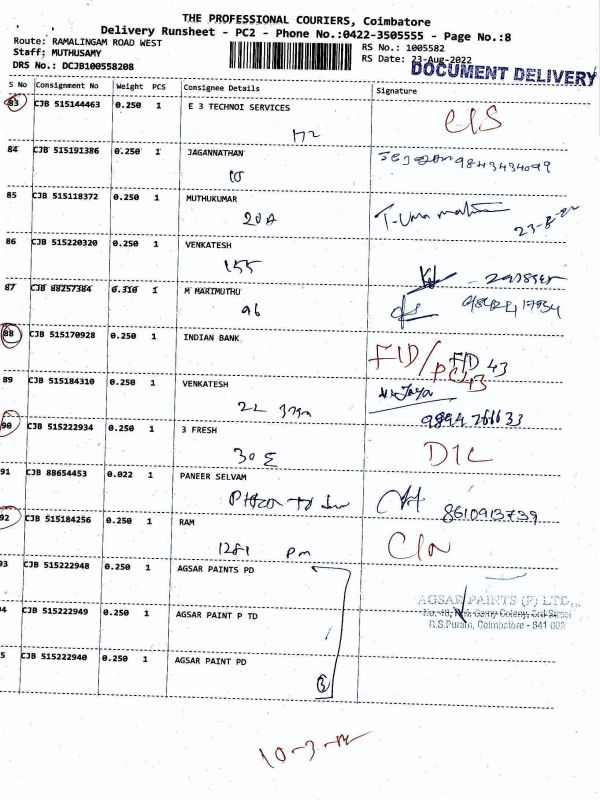 THE PROFESSIONAL COURIERS, Coimbatore
Delivery Runsheet - PC2 - Phone No.:0422-3505555 - Page No.:8
Route: RAMALINGAM ROAD WEST
RS No.: 1005582
Staff: MUTHUSAMY
RS Date: 23-Aug-2022
DRS No.: DCJB100558208
DOCUMENT DELIVERY
S No Consignment No Weight PCS Consignee Details Signature
83 CJB 515144463 0.250 1 E 3 TECHNOI SERVICES
172
84 CJB 515191386 0.250 1 JAGANNATHAN
9843434099
10
85 CJB 515118372 0.250 1 MUTHUKUMAR
20A
23-8-22
86 CJB 515220320 0.250 1 VENKATESH
155
87 CJB 88257384 0.310 1 M MARIMUTHU
96
88 CJB 515170928 0.250 1 INDIAN BANK
FID/ FID 43
89 CJB 515184310 0.250 1 VENKATESH
22
9894 766633
90 CJB 515222934 0.250 1 3 FRESH
30 E
D1L
91 CJB 88654453 0.022 1 PANEER SELVAM
8610913739
92 CJB 515184256 0.250 1 RAM
1281 pm
93 CJB 515222948 0.250 1 AGSAR PAINTS PD
AGSAR PAINTS (P) LTD.,
4 CJB 515222949 0.250 1 AGSAR PAINT P TD
R.S.Puram, Coimbatore - 641 002
5 CJB 515222940 0.250 1 AGSAR PAINT PD
3
10-3-12